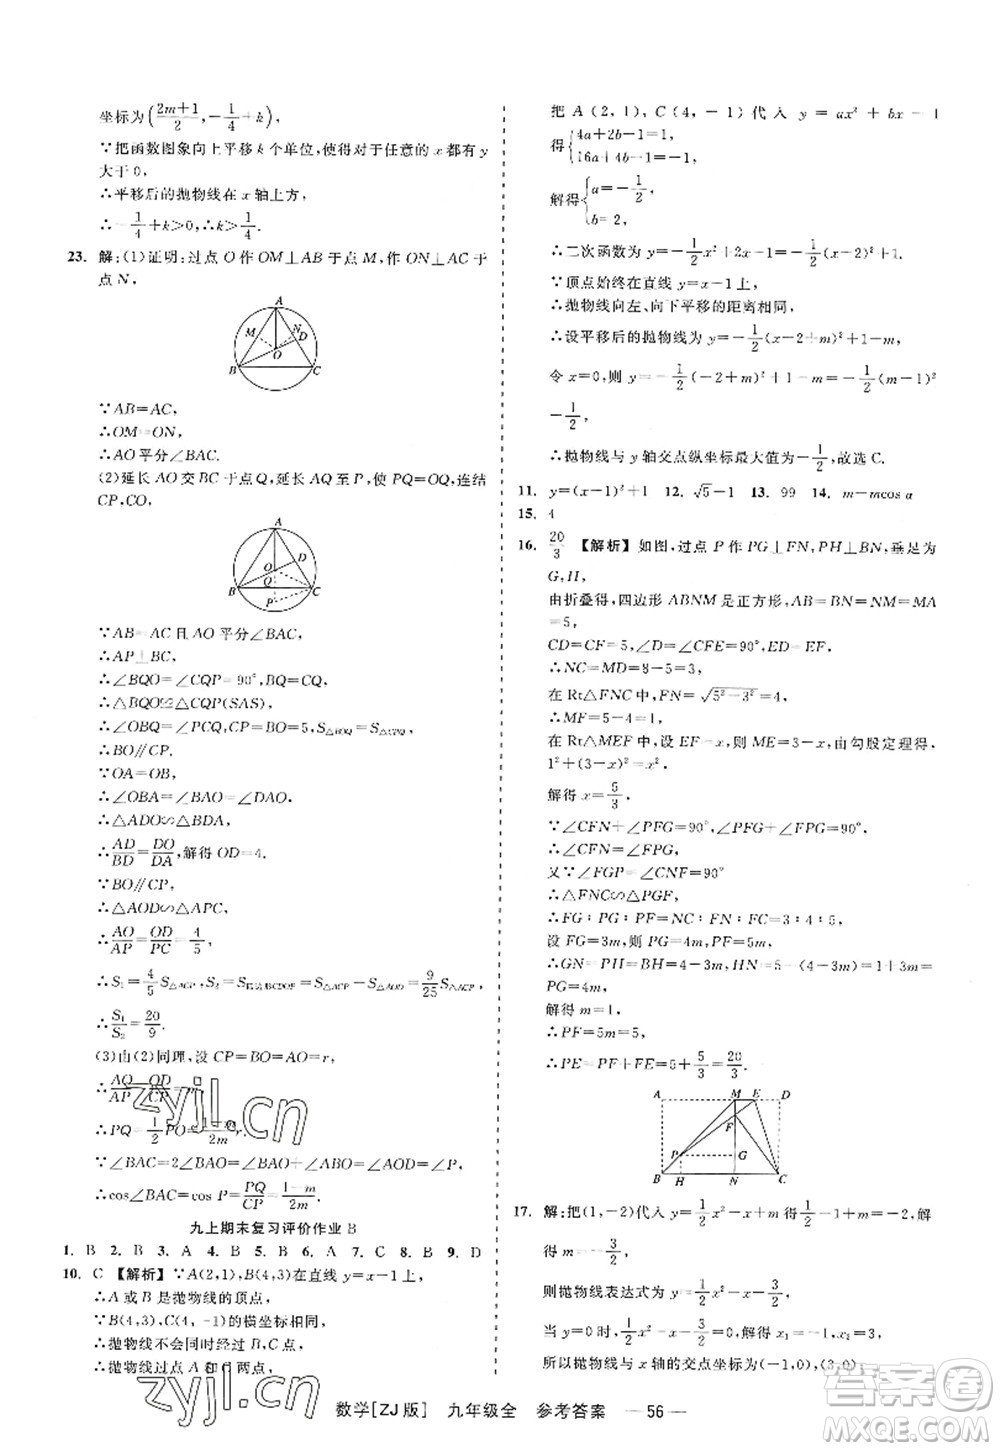 坐标为(\frac{2m+1}{2}, -\frac{1}{4}+k),
∵把函数图象向上平移k个单位,使得对于任意的x都有y
大于0,
∴平移后的抛物线在x轴上方,
∴-\frac{1}{4}+k>0,∴k>\frac{1}{4}.
23. 解:(1)证明:过点O作OM⊥AB于点M,作ON⊥AC于
点N,
A
M N D
O
B C
∵AB=AC,
∴OM=ON,
∴AO平分∠BAC.
(2)延长AO交BC于点Q,延长AQ至P,使PQ=OQ,连结
CP,CO,
A
O D
B Q C
P
∵AB=AC且AO平分∠BAC,
∴AP⊥BC,
∴∠BQO=∠CQP=90°,BQ=CQ,
∴△BQO≌△CQP(SAS),
∴∠OBQ=∠PCQ,CP=BO=5,S△BOQ=S△CPQ,
∴BO∥CP.
∵OA=OB,
∴∠OBA=∠BAO=∠DAO,
∴△ADO∽△BDA,
∴\frac{AD}{BD}=\frac{DO}{DA},解得OD=4.
∵BO∥CP,
∴△AOD∽△APC,
∴\frac{AO}{AP}=\frac{OD}{PC}=\frac{4}{5},
∴S₁=\frac{4}{5}S△ACP,S₂=S四边形CDOP=S△ACP-S△AOD=\frac{9}{25}S△ACP,
∴\frac{S₁}{S₂}=\frac{20}{9}.
(3)由(2)同理,设CP=BO=AO=r,
∴\frac{AO}{AP}=\frac{OD}{CP}=m,
∴PQ=\frac{1}{2}PO=\frac{1-m}{2m}r.
∵∠BAC=2∠BAO=∠BAO+∠ABO=∠BOP=∠P,
∴cos∠BAC=cos P=\frac{PQ}{CP}=\frac{1-m}{2m}.
九上期末复习评价作业B
1. B 2. B 3. A 4. B 5. B 6. A 7. C 8. B 9. D
10. C 【解析】∵A(2,1),B(4,3)在直线y=x-1上,
∴A或B是抛物线的顶点,
∵B(4,3),C(4,-1)的横坐标相同,
∴抛物线不会同时经过B,C点,
∴抛物线过点A和C两点,
把A(2,1),C(4,-1)代入y=ax²+bx-1,
得{4a+2b-1=1,
16a+4b-1=-1,
解得{a=-\frac{1}{2},
b=2,
∴二次函数为y=-\frac{1}{2}x²+2x-1.
∵顶点始终在直线y=x-1上,
∴抛物线向左、向下平移的距离相同,
∴设平移后的抛物线为y=-\frac{1}{2}(x-2+m)²+1-m,
令x=0,则y=-\frac{1}{2}(-2+m)²+1-m=-\frac{1}{2}(m-1)²
-\frac{1}{2},
∴抛物线与y轴交点纵坐标最大值为-\frac{1}{2},故选C.
11. y=(x-1)²+1 12. √5-1 13. 99 14. m-mcos α
15. 4
16. \frac{20}{3} 【解析】如图,过点P作PG⊥FN,PH⊥BN,垂足为
G,H,
由折叠得,四边形ABNM是正方形,AB=BN=NM=MA
=5,
CD=CF=5,∠D=∠CFE=90°,
∴NC=MD=8-5=3,
在Rt△FNC中,FN=√(5²-3²)=4,
∴MF=5-4=1,
在Rt△MEF中,设EF=x,则ME=3-x,由勾股定理得,
1²+(3-x)²=x²,
解得x=\frac{5}{3}.
∵∠CFN+∠PFG=90°,∠PFG+∠FPG=90°,
∴∠CFN=∠FPG,
又∵∠FGP=∠CNF=90°
∴△FNC∽△PGF,
∴FG:PG:PF=NC:FN:FC=3:4:5,
设FG=3m,则PG=4m,PF=5m,
∴GN=PH=BH=4-3m,HN=5-(4-3m)=1+3m=
PG=4m,
解得m=1,
∴PF=5m=5,
∴PE=PF+FE=5+\frac{5}{3}=\frac{20}{3}.
A M E D
F
P G
B H N C
17. 解:把(1,-2)代入y=\frac{1}{2}x²-x+m得\frac{1}{2}-1+m=-2,
解得m=-\frac{3}{2},
则抛物线表达式为y=\frac{1}{2}x²-x-\frac{3}{2},
当y=0时,\frac{1}{2}x²-x-\frac{3}{2}=0,解得x₁=-1,x₂=3,
所以抛物线与x轴的交点坐标为(-1,0),(3,0);
数学[ZJ版] 九年级全 参考答案 —56—
zyjl.cn
zyjl.cn
答案圈
MXQE.COM